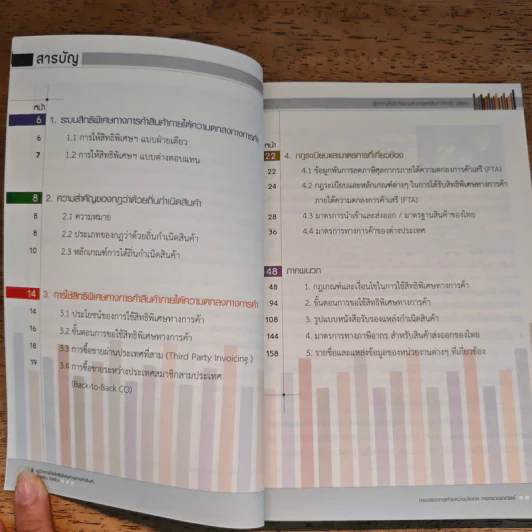 สารบัญ
หน้า
6 1. ระบบสิทธิพิเศษทางการค้าสินค้าภายใต้ความตกลงทางการค้า
6 1.1 การให้สิทธิพิเศษฯ แบบฝ่ายเดียว
7 1.2 การให้สิทธิพิเศษฯ แบบต่างตอบแทน
8 2. ความสำคัญของกฎว่าด้วยถิ่นกำเนิดสินค้า
8 2.1 ความหมาย
8 2.2 ประเภทของกฎว่าด้วยถิ่นกำเนิดสินค้า
10 2.3 หลักเกณฑ์การได้ถิ่นกำเนิดสินค้า
14 3. การใช้สิทธิพิเศษทางการค้าสินค้าภายใต้ความตกลงทางการค้า
14 3.1 ประโยชน์ของการใช้สิทธิพิเศษทางการค้า
16 3.2 ขั้นตอนการขอใช้สิทธิพิเศษทางการค้า
18 3.3 การซื้อขายผ่านประเทศที่สาม (Third Party Invoicing )
19 3.4 การซื้อขายระหว่างประเทศสมาชิกสามประเทศ
(Back-to-Back CO)
หน้า
22 4. กฎระเบียบและมาตรการที่เกี่ยวข้อง
22 4.1 ข้อผูกพันการลดภาษีศุลกากรภายใต้ความตกลงการค้าเสรี (FTA)
24 4.2 กฎระเบียบและหลักเกณฑ์ต่างๆ ในการได้รับสิทธิพิเศษทางการค้า
ภายใต้ความตกลงการค้าเสรี (FTA)
28 4.3 มาตรการนำเข้าและส่งออก / มาตรฐานสินค้าของไทย
36 4.4 มาตรการทางการค้าของต่างประเทศ
48 ภาคผนวก
48 1. กฎเกณฑ์และเงื่อนไขในการใช้สิทธิพิเศษทางการค้า
94 2. ขั้นตอนการขอใช้สิทธิพิเศษทางการค้า
108 3. รูปแบบหนังสือรับรองแหล่งกำเนิดสินค้า
144 4. มาตรการทางภาษีอากร สำหรับสินค้าส่งออกของไทย
158 5. รายชื่อและแหล่งข้อมูลของหน่วยงานต่างๆ ที่เกี่ยวข้อง
กรมเจรจาการค้าระหว่างประเทศ กระทรวงพาณิชย์